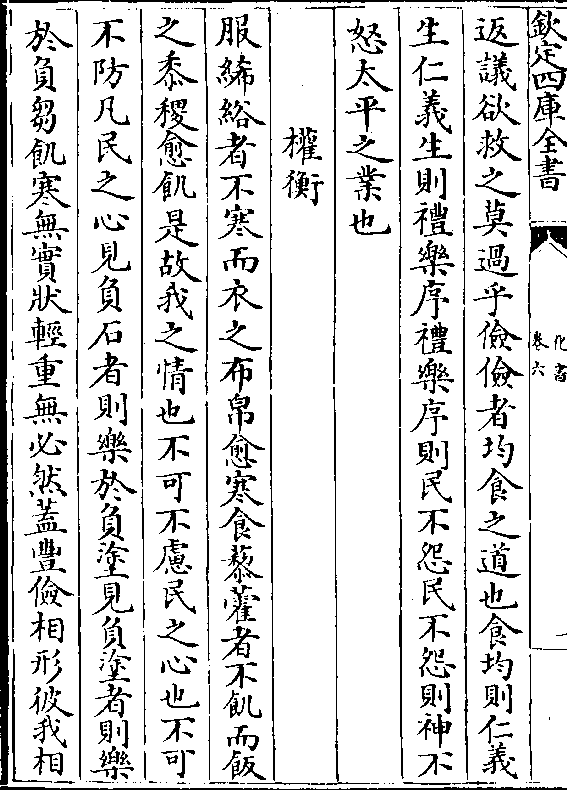 欽定四庫全書
化書
卷六
返議欲救之莫過乎儉儉者均食之道也食均則仁義
生仁義生則禮樂序禮樂序則民不怨民不怨則神不
怒太平之業也
權衡
服絺綌者不寒而衣之布帛愈寒食藜藿者不飢而飯
之黍稷愈飢是故我之情也不可不慮民之心也不可
不防凡民之心見負石者則樂於負塗見負塗者則樂
於負芻飢寒無實狀輕重無必然蓋豐儉相形彼我相